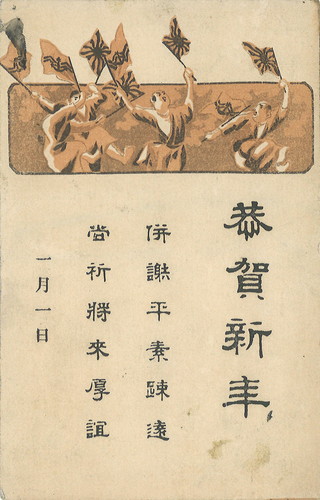 恭賀新年
併謝平素疎遠
尚祈将来厚誼
一月一日